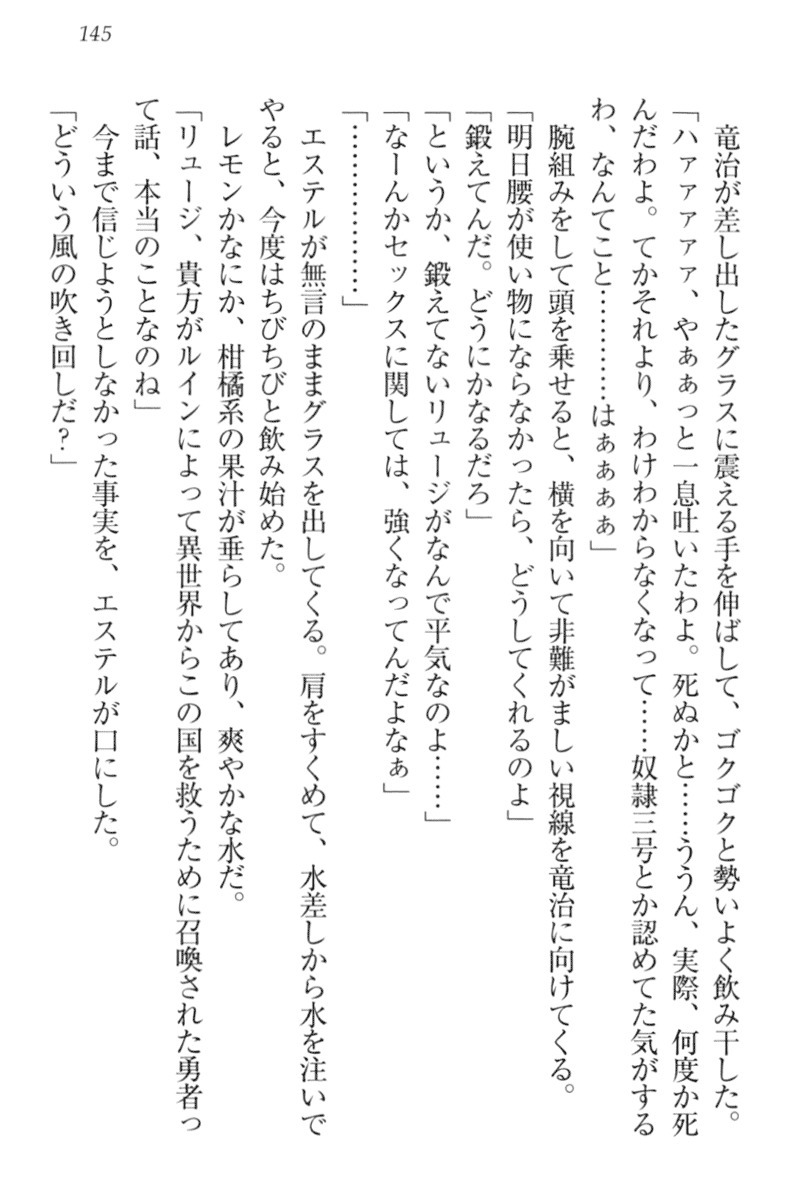 145
竜治が差し出したグラスに震える手を伸ばして、ゴクゴクと勢いよく飲み干した。
「ハァァァァァ、やぁぁっと一息吐いたわよ。死ぬかと……ううん、実際、何度か死
んだわよ。てかそれより、わけわからなくなって……奴隷三号とか認めてた気がする
わ、なんてこと…………はぁぁぁぁ」
腕組みをして頭を乗せると、横を向いて非難がましい視線を竜治に向けてくる。
「明日腰が使い物にならなかったら、どうしてくれるのよ」
「鍛えてんだ。どうにかなるだろ」
「というか、鍛えてないリュージがなんで平気なのよ……」
「なーんかセックスに関しては、強くなってんだよなぁ」
「………………」
エステルが無言のままグラスを出してくる。肩をすくめて、水差しから水を注いで
やると、今度はちびちびと飲み始めた。
レモンかなにか、柑橘系の果汁が垂らしてあり、爽やかな水だ。
「リュージ、貴方がルインによって異世界からこの国を救うために召喚された勇者っ
て話、本当のことなのね」
今まで信じようとしなかった事実を、エステルが口にした。
「どういう風の吹き回しだ?」